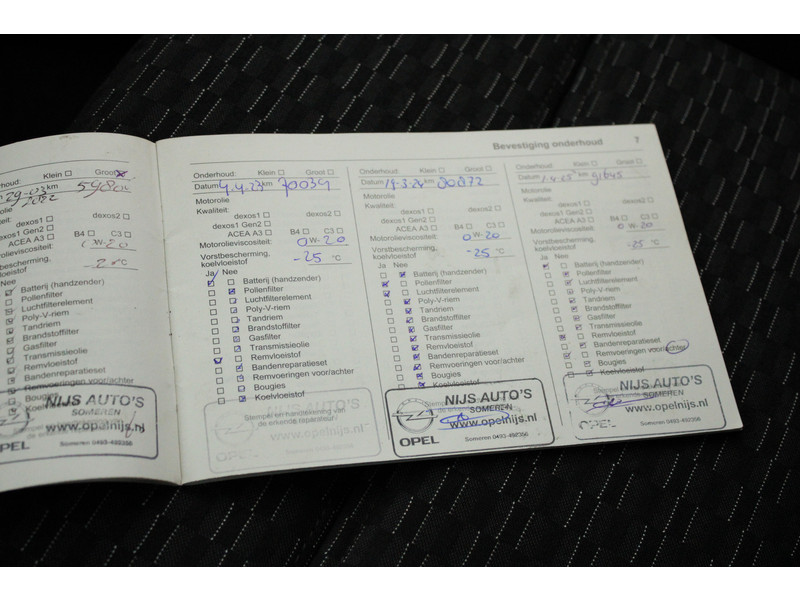 Bevestiging onderhoud 7
Onderhoud: Klein Groot
29-03 2022 km 59802
Motorolie
Kwaliteit:
dexos1 dexos2
dexos1 Gen2
ACEA A3 B4 C3
W-20
Vorstbescherming, koelvloeistof
°C
Ja Nee
Batterij (handzender)
Pollenfilter
Luchtfilterelement
Poly-V-riem
Tandriem
Brandstoffilter
Gasfilter
Transmissieolie
Remvloeistof
Bandenreparatieset
Remvoeringen voor/achter
Bougies
Koelvloeistof
NIJS AUTO'S
SOMEREN
www.opelnijs.nl
OPEL Someren 0493-492356
Onderhoud: Klein Groot
Datum 4.4.23 km 70034
Motorolie
Kwaliteit:
dexos1 dexos2
dexos1 Gen2
ACEA A3 B4 C3
Motorolieviscositeit: 0W-20
Vorstbescherming, koelvloeistof -25 °C
Ja Nee
Batterij (handzender)
Pollenfilter
Luchtfilterelement
Poly-V-riem
Tandriem
Brandstoffilter
Gasfilter
Transmissieolie
Remvloeistof
Bandenreparatieset
Remvoeringen voor/achter
Bougies
Koelvloeistof
Stempel en handtekening van
de erkende reparateur:
NIJS AUTO'S
SOMEREN
www.opelnijs.nl
OPEL Someren 0493-492356
Onderhoud: Klein Groot
Datum 19-3-24 km
Motorolie
Kwaliteit:
dexos1 dexos2
dexos1 Gen2
ACEA A3 B4 C3
Motorolieviscositeit: 0W-20
Vorstbescherming, koelvloeistof -25 °C
Ja Nee
Batterij (handzender)
Pollenfilter
Luchtfilterelement
Poly-V-riem
Tandriem
Brandstoffilter
Gasfilter
Transmissieolie
Remvloeistof
Bandenreparatieset
Remvoeringen voor/achter
Bougies
Koelvloeistof
NIJS AUTO'S
SOMEREN
www.opelnijs.nl
OPEL Someren 0493-492356
Onderhoud: Klein Groot
Datum km 91645
Motorolie
Kwaliteit:
dexos1 dexos2
dexos1 Gen2
ACEA A3 B4 C3
Motorolieviscositeit: 0W-20
Vorstbescherming, koelvloeistof -25 °C
Ja Nee
Batterij (handzender)
Pollenfilter
Luchtfilterelement
Poly-V-riem
Tandriem
Brandstoffilter
Gasfilter
Transmissieolie
Remvloeistof
Bandenreparatieset
Remvoeringen voor/achter
Bougies
Koelvloeistof
NIJS AUTO'S
SOMEREN
www.opelnijs.nl
OPEL Someren 0493-492356